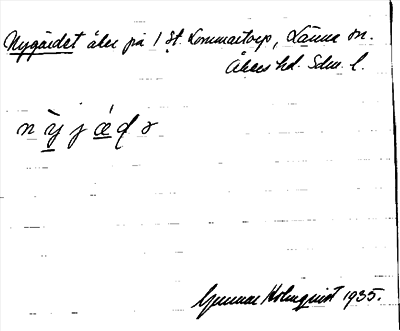 Nygärdet åker på 1 St. Kommartorp, Länna sn.
Åkers hd. Sdm. l.
n ỳ̠ j ǽ̠ d ɘ
Gunnar Holmquist 1935.